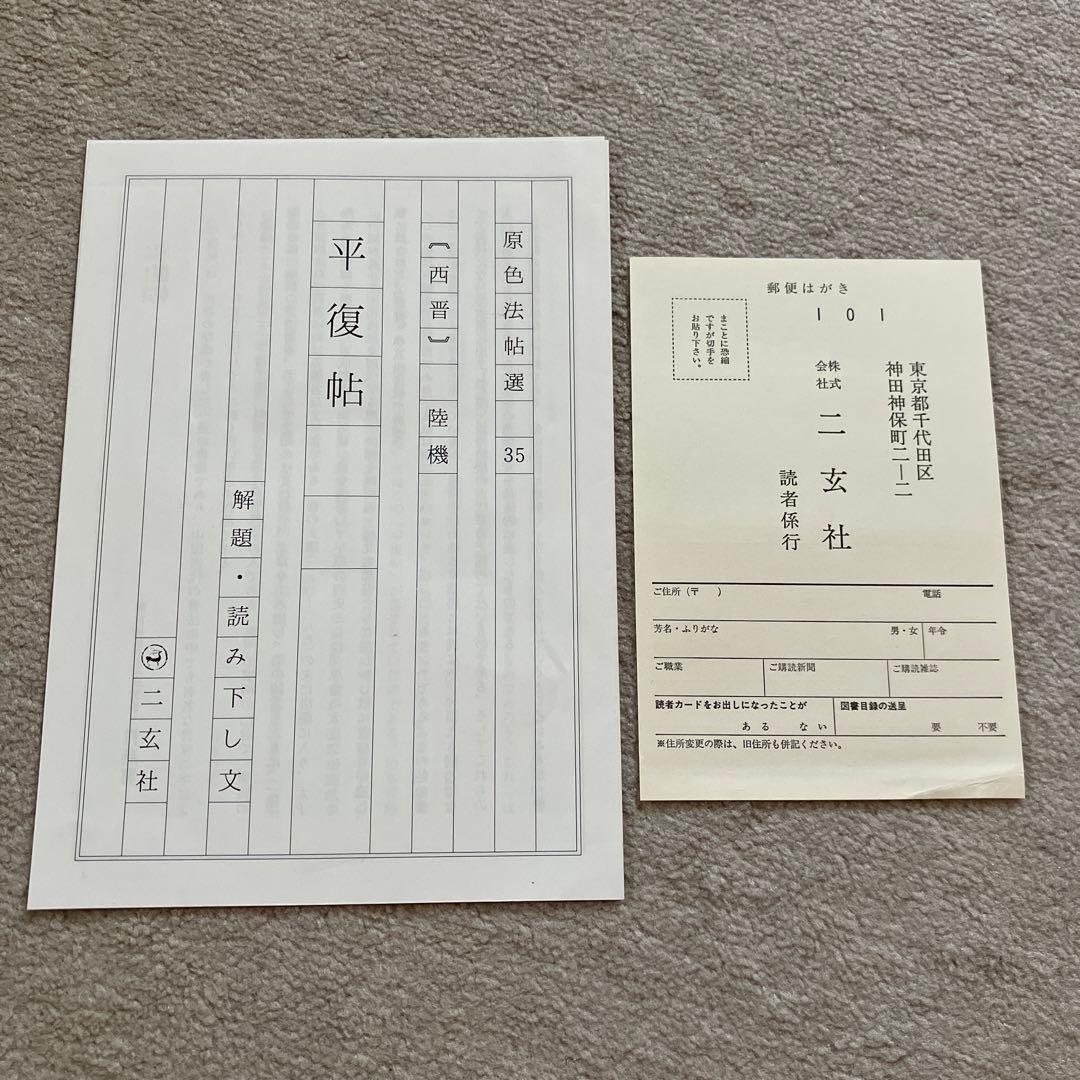 原色法帖選 35
〘西晋〙 陸機
平復帖
解題・読み下し文
二玄社
郵便はがき
101
まことに恐縮
ですが切手を
お貼り下さい。
東京都千代田区
神田神保町二―二
株式
会社
二玄社
読者係行
ご住所(〒 )
電話
芳名・ふりがな
男・女
年令
ご職業
ご購読新聞
ご購読雑誌
読者カードをお出しになったことが
ある ない
図書目録の送呈
要 不要
※住所変更の際は、旧住所も併記ください。